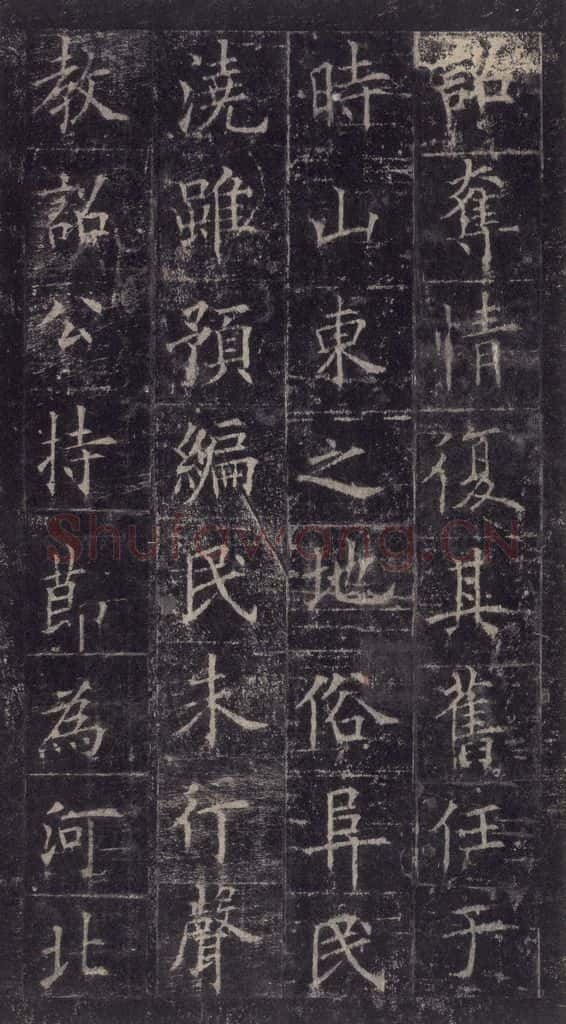 詔奪情復其舊任于
時山東之地俗阜民
澆雖預編民未行聲
教詔公持莭為河北
Shufawang.CN